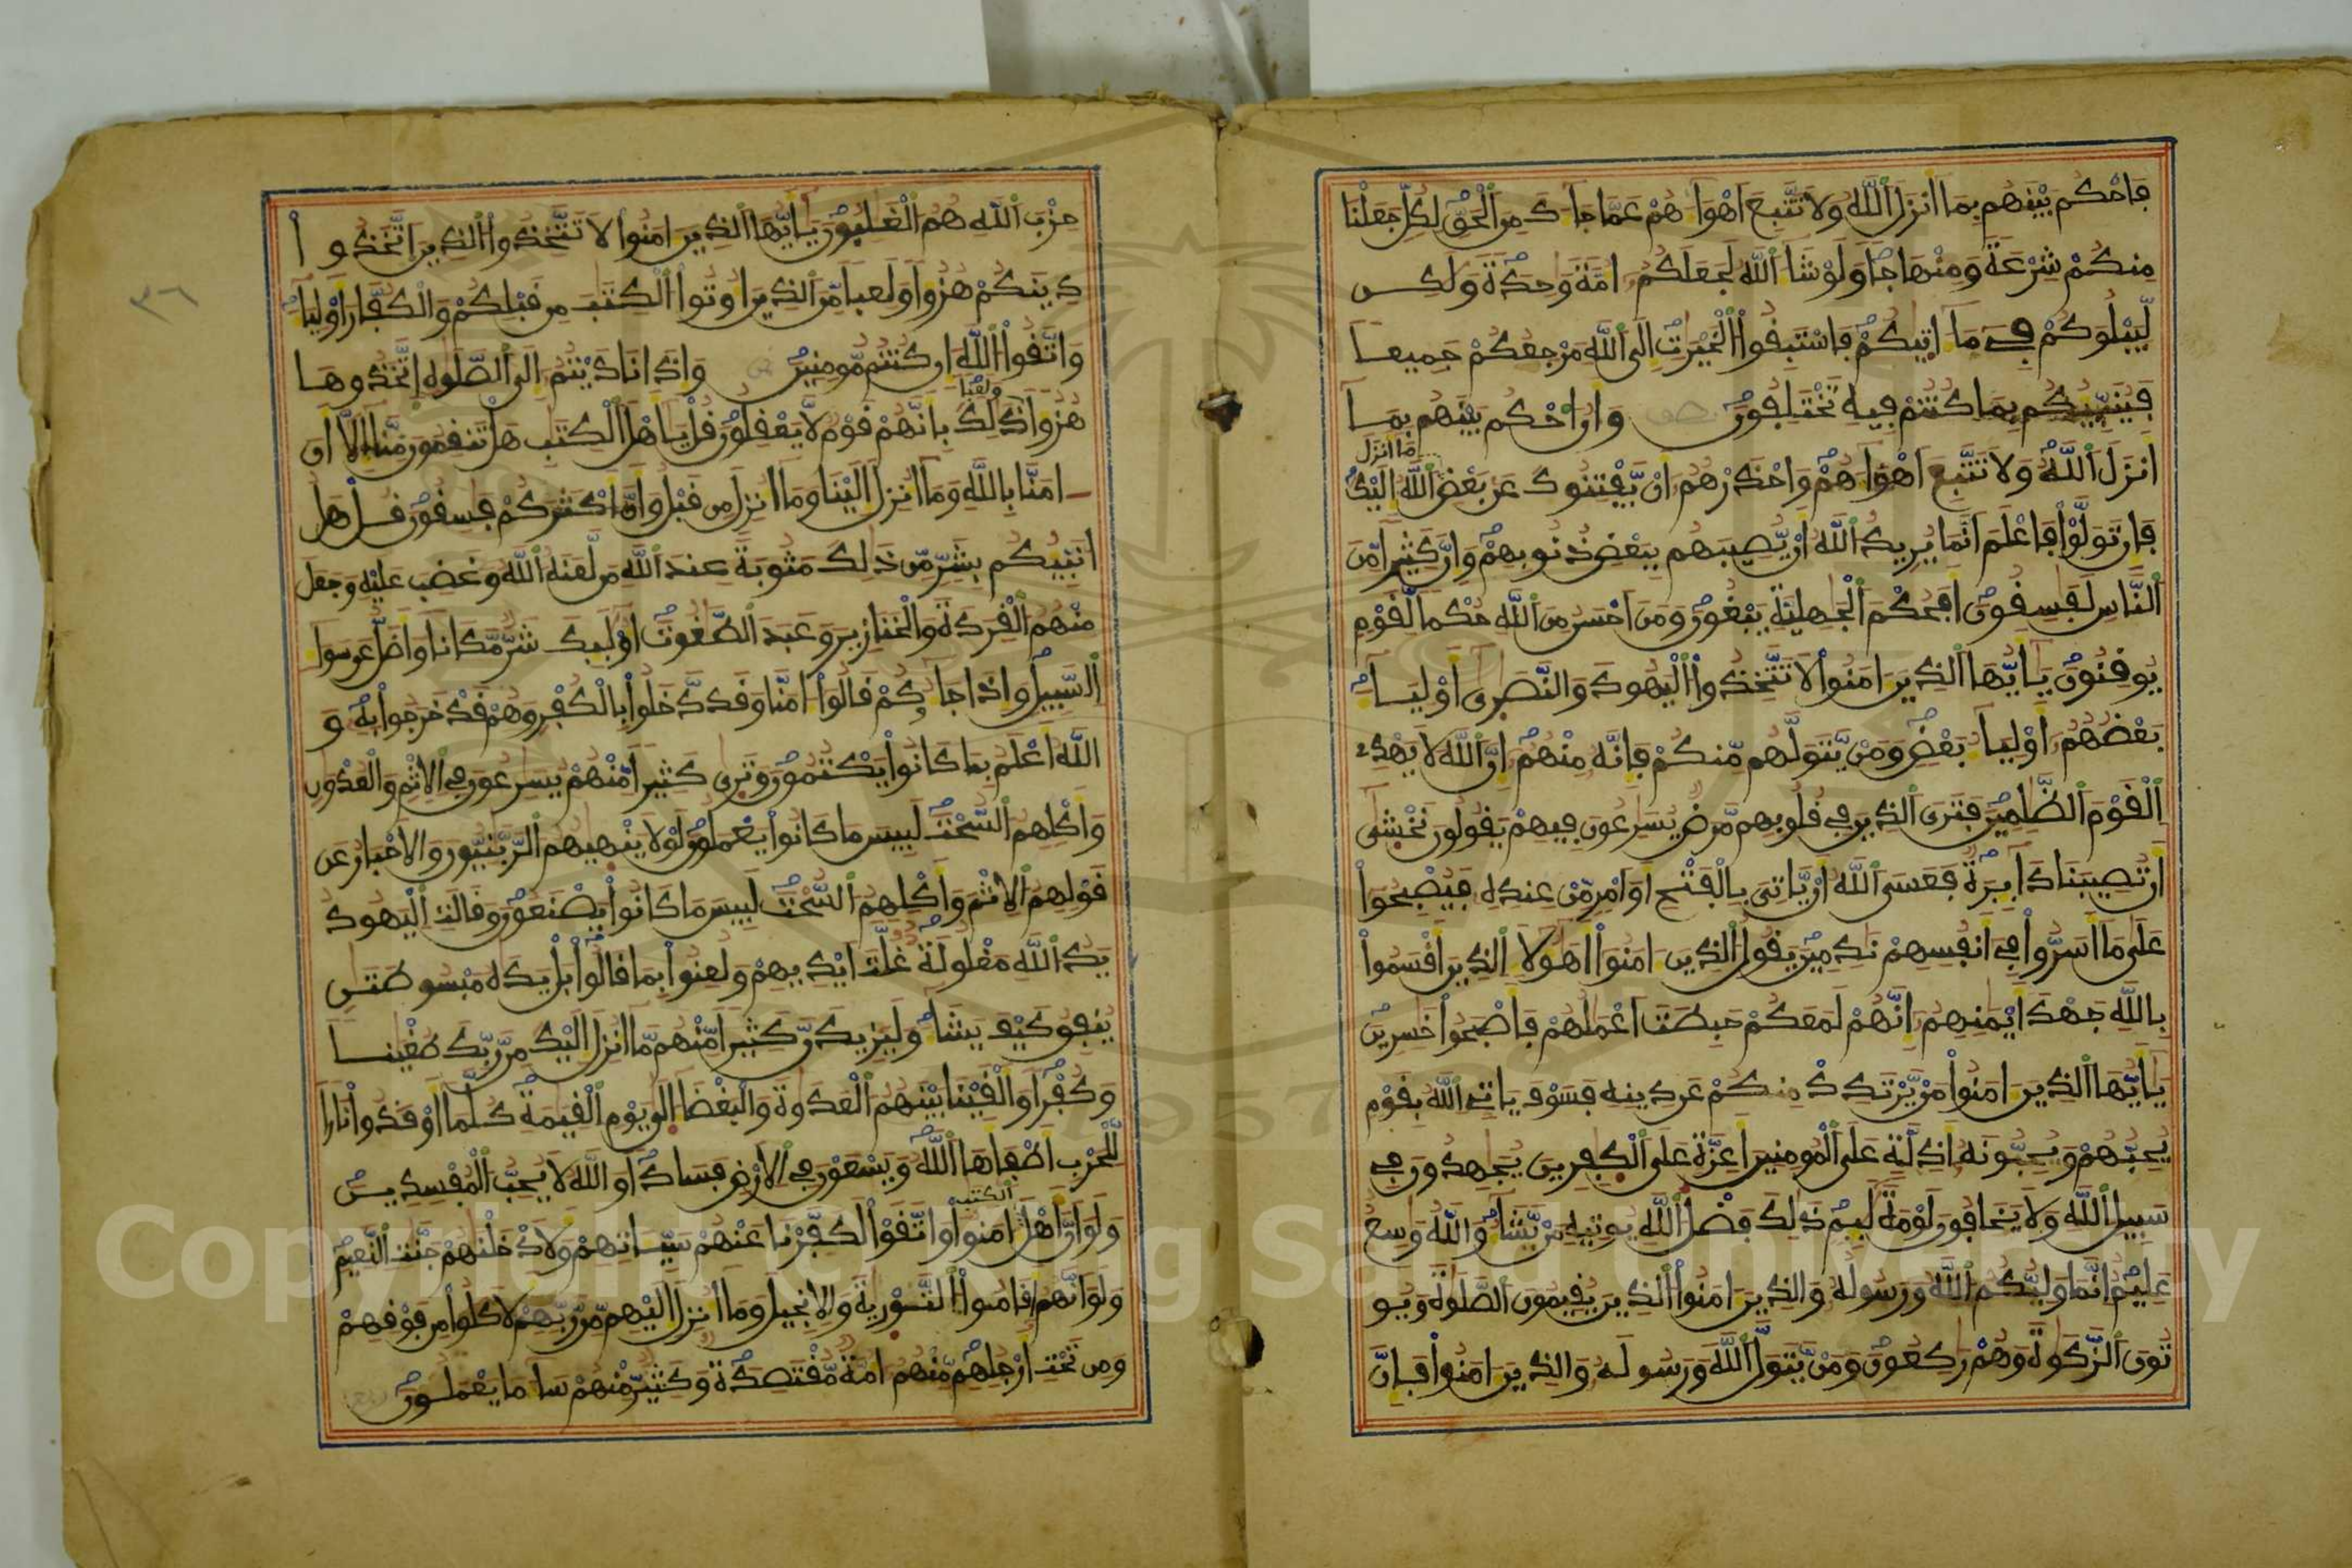 فَاحْكُم بَيْنَهُم بِمَا أَنزَلَ اللَّهُ وَلَا تَتَّبِعَ اَهْوَاءَهُمْ عَمَّا جَاءَكَ مِنَ الْحَقِّ لِكُلٍّ جَعَلْنَا
مِنكُمْ شِرْعَةً وَمِنْهَاجًا وَلَوْ شَاءَ اللَّهُ لَجَعَلَكُمْ امَّةً وَاحِدَةً وَلَكِن
لِّيَبْلُوَكُمْ فِي مَا ءَاتَيكُمْ فَاسْتَبِقُوا الْخَيْرَتِ إِلَى اللَّهِ مَرْجِعُكُمْ جَمِيعًا
فَيُنَبِّيُكُم بِمَا كُنتُمْ فِيهِ تَخْتَلِفُونَ وَأَنُ احْكُم بَيْنَهُم بِمَا
أَنزَلَ اللَّهُ وَلَا تَتَّبِعَ اهْوَاءَهُمْ وَاحْذَرْهُمُ أَنْ يَّفْتِنُوكَ عَن بَعْضِ مَا انزَلَ اللَّهُ إِلَيْكَ
فَإِن تَوَلَّوْا فَاعْلَمَ انَّمَا يُرِيدُ اللَّهُ أَنْ يُّصِيبَهُم بِبَعْضِ ذُنُوبِهِمْ وَإِنَّ كَثِيرًا مِّنَ
النَّاسِ لَفَسِقُونَ أَفَحُكْمَ الْجَهِلِيَّةِ يَبْغُونَ وَمَنَ احْسَنُ مِنَ اللَّهِ حُكْمًا لِّقَوْمٍ
يُوقِنُونَ يَأَيُّهَا الذِينَ ءَامَنُوا لَا تَتَّخِذُوا الْيَهُودَ وَالنَّصَرِى أَوْلِيَاءَ
بَعْضُهُمُ أَوْلِيَاءُ بَعْضٍ وَمَنْ يَّتَوَلَّهُم مِّنكُمْ فَإِنَّهُ مِنْهُمُ إِنَّ اللَّهَ لَا يَهْدِي
الْقَوْمَ الظَّلِمِينَ فَتَرَى الذِينَ فِي قُلُوبِهِم مَّرَضٌ يُسَرِعُونَ فِيهِمْ يَقُولُونَ نَخْشَى
أَن تُصِيبَنَا دَائِرَةٌ فَعَسَى اللَّهُ أَنْ يَّاتِيَ بِالْفَتْحِ أَوَ امْرٍ مِّنْ عِندِهِ فَيُصْبِحُوا
عَلَى مَا أَسَرُّوا فِي أَنفُسِهِمْ نَدِمِينَ يَقُولُ الذِينَ ءَامَنُوا أَهَؤُلَاءِ الذِينَ أَقْسَمُوا
بِاللَّهِ جَهْدَ أَيْمَنِهِمُ إِنَّهُمْ لَمَعَكُمْ حَبِطَتَ اعْمَلُهُمْ فَأَصْبَحُوا خَسِرِينَ
يَأَيُّهَا الذِينَ ءَامَنُوا مَنْ يَّرْتَدِدْ مِنكُمْ عَن دِينِهِ فَسَوْفَ يَاتِي اللَّهُ بِقَوْمٍ
يُحِبُّهُمْ وَيُحِبُّونَهُ أَذِلَّةٍ عَلَى الْمُومِنِينَ أَعِزَّةٍ عَلَى الْكَفِرِينَ يُجَهِدُونَ فِي
سَبِيلِ اللَّهِ وَلَا يَخَافُونَ لَوْمَةَ لَائِمٍ ذَلِكَ فَضْلُ اللَّهِ يُوتِيهِ مَنْ يَّشَاءُ وَاللَّهُ وَسِعٌ
عَلِيمٌ إِنَّمَا وَلِيُّكُمُ اللَّهُ وَرَسُولُهُ وَالذِينَ ءَامَنُوا الذِينَ يُقِيمُونَ الصَّلَوةَ وَيُو
تُونَ الزَّكَوةَ وَهُمْ رَكِعُونَ وَمَنْ يَّتَوَلَّ اللَّهَ وَرَسُولَهُ وَالذِينَ ءَامَنُوا فَإِنَّ
٣٦
حِزْبَ اللَّهِ هُمُ الْغَلِبُونَ يَأَيُّهَا الذِينَ ءَامَنُوا لَا تَتَّخِذُوا الذِينَ اتَّخَذُوا
دِينَكُمْ هُزُؤًا وَلَعِبًا مِّنَ الذِينَ أُوتُوا الْكِتَبَ مِن قَبْلِكُمْ وَالْكُفَّارَ أَوْلِيَاءَ
وَاتَّقُوا اللَّهَ إِن كُنتُم مُّومِنِينَ وَإِذَا نَادَيْتُمُ إِلَى الصَّلَوةِ اتَّخَذُوهَا
هُزُؤًا وَلَعِبًا ذَلِكَ بِأَنَّهُمْ قَوْمٌ لَّا يَعْقِلُونَ قُلْ يَأَهْلَ الْكِتَبِ هَلْ تَنقِمُونَ مِنَّا إِلَّا أَنَ
ءَامَنَّا بِاللَّهِ وَمَا أُنزِلَ إِلَيْنَا وَمَا أُنزِلَ مِن قَبْلُ وَأَنَّ أَكْثَرَكُمْ فَسِقُونَ قُلْ هَلُ
أُنَبِّئُكُم بِشَرٍّ مِّن ذَلِكَ مَثُوبَةً عِندَ اللَّهِ مَن لَّعَنَهُ اللَّهُ وَغَضِبَ عَلَيْهِ وَجَعَلَ
مِنْهُمُ الْقِرَدَةَ وَالْخَنَازِيرَ وَعَبَدَ الطَّغُوتَ أُوْلَئِكَ شَرٌّ مَّكَانًا وَأَضَلُّ عَن سَوَاءِ
السَّبِيلِ وَإِذَا جَاءُوكُمْ قَالُوا ءَامَنَّا وَقَد دَّخَلُوا بِالْكُفْرِ وَهُمْ قَدْ خَرَجُوا بِهِ وَ
اللَّهُ أَعْلَمُ بِمَا كَانُوا يَكْتُمُونَ وَتَرَى كَثِيرًا مِّنْهُمْ يُسَرِعُونَ فِي الِاثْمِ وَالْعُدْوَنِ
وَأَكْلِهِمُ السُّحْتَ لَبِيسَ مَا كَانُوا يَعْمَلُونَ لَوْلَا يَنْهَيهُمُ الرَّبَّنِيُّونَ وَالَاحْبَارُ عَن
قَوْلِهِمُ الِاثْمَ وَأَكْلِهِمُ السُّحْتَ لَبِيسَ مَا كَانُوا يَصْنَعُونَ وَقَالَتِ الْيَهُودُ
يَدُ اللَّهِ مَغْلُولَةٌ غُلَّتَ ايْدِيهِمْ وَلُعِنُوا بِمَا قَالُوا بَلْ يَدَهُ مَبْسُوطَتَنِ
يُنفِقُ كَيْفَ يَشَاءُ وَلَيَزِيدَنَّ كَثِيرًا مِّنْهُم مَّا أُنزِلَ إِلَيْكَ مِن رَّبِّكَ طُغْيَنًا
وَكُفْرًا وَأَلْقَيْنَا بَيْنَهُمُ الْعَدَوَةَ وَالْبَغْضَاءَ إِلَى يَوْمِ الْقِيَمَةِ كُلَّمَا أَوْقَدُوا نَارًا
لِّلْحَرْبِ أَطْفَأَهَا اللَّهُ وَيَسْعَوْنَ فِي الَارْضِ فَسَادًا وَاللَّهُ لَا يُحِبُّ الْمُفْسِدِينَ
وَلَوَ انَّ أَهْلَ الْكِتَبِ ءَامَنُوا وَاتَّقَوْا لَكَفَّرْنَا عَنْهُمْ سَيِّئَاتِهِمْ وَلَأَدْخَلْنَهُمْ جَنَّتِ النَّعِيمِ
وَلَوَ انَّهُمُ أَقَامُوا التَّوْرَيةَ وَالِانجِيلَ وَمَا أُنزِلَ إِلَيْهِم مِّن رَّبِّهِمْ لَأَكَلُوا مِن فَوْقِهِمْ
وَمِن تَحْتِ أَرْجُلِهِم مِّنْهُمُ أُمَّةٌ مُّقْتَصِدَةٌ وَكَثِيرٌ مِّنْهُمْ سَاءَ مَا يَعْمَلُونَ
Copyright © King Saud University
1957